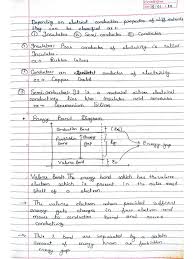 Depending on electrical conduction properties of different materials
they can be classified as →
① Insulator ② Semi Conductor ③ Conductor
① Insulator: Poor conductor of electricity is called
Insulator
ex → Rubber, Cotton
② Conductor: Good conductor of electricity
ex → Copper, Gold
③ Semiconductor: It is a material whose electrical
conductivity lies between Insulator and conductor
ex → Germanium, Silicon
→ Energy Band Diagram:
Conduction Band
Energy gap
Valence Band
Valence Band: The energy band which has the valence
electron which is present in the outer most
shell of an element
→ The valence electron when provided sufficient
energy gets changes in free electron and
moves to conduction band and causes
conductivity.
→ This 2 band are separated by a certain
amount of energy known as forbidden
energy gap